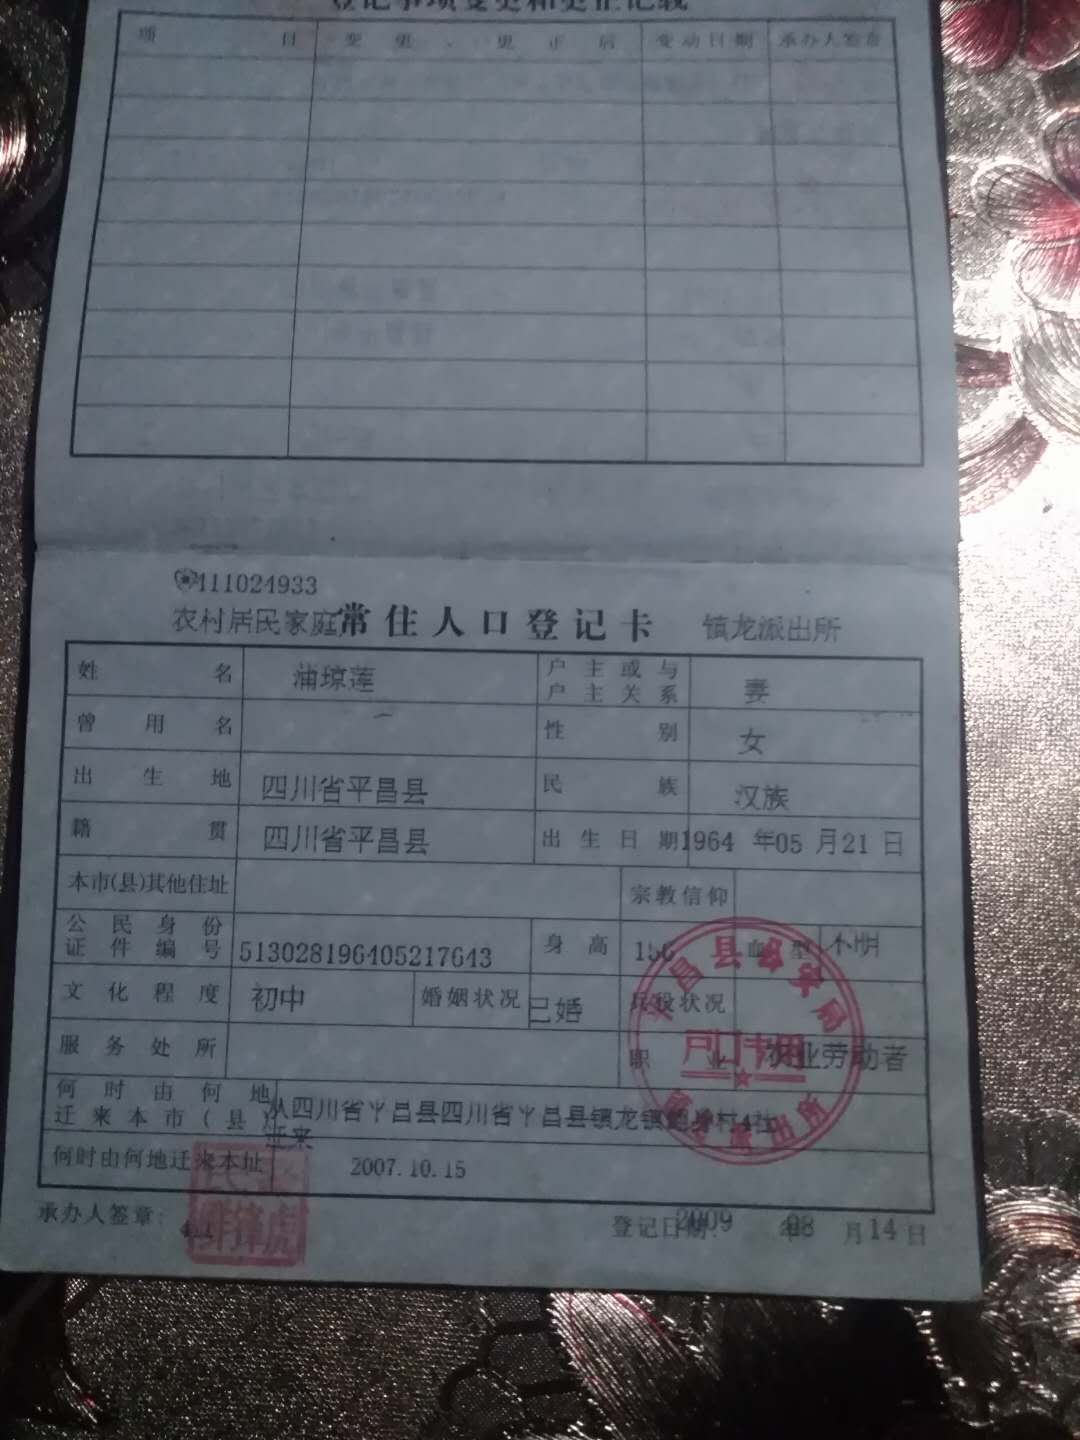 登记事项变更和更正记载
项 目 变更、更正后 变动日期 承办人签章
111024933
农村居民家庭 常住人口登记卡 镇龙派出所
姓 名 蒲琼莲 户主或与户主关系 妻
曾用名 性别 女
出生地 四川省平昌县 民族 汉族
籍贯 四川省平昌县 出生日期 1964 年05 月21 日
本市(县)其他住址 宗教信仰
公民身份证件编号 513028196405217643 身高 150 血型 不明
文化程度 初中 婚姻状况 已婚 兵役状况
服务处所 职业 农业劳动者
何时由何地迁来本市(县) 从四川省平昌县四川省平昌县镇龙镇 村4社
迁来
何时由何地迁来本址 2007.10.15
承办人签章: 登记日期: 2009 年08 月14日